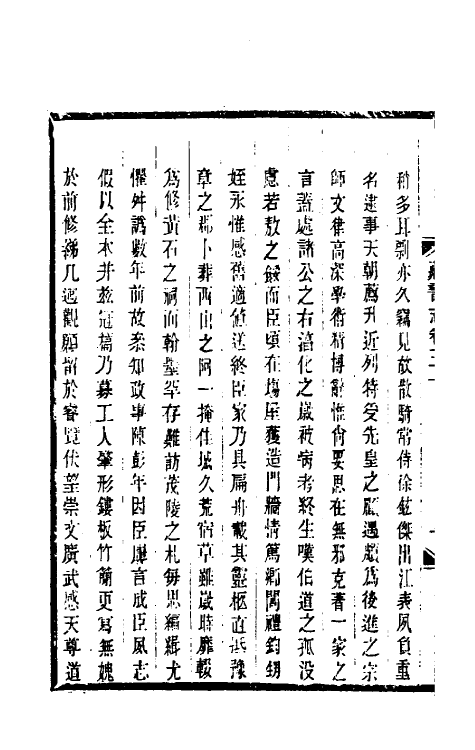 積多耳剽亦久竊見故散騎常侍徐鉉傑出江表夙負重
名逮事天朝薦升近列特受先皇之顧遇蔚爲後進之宗
師文律高深學術精博辭惟尙要思在無邪克著一家之
言蓋處諸公之右淯化之歲被病考終生嘆伯道之孤沒
慮若敖之餒而臣頃在塲屋獲造門牆情篤鄉閭禮鈞甥
姪永惟感舊適値送終臣家乃具扁舟載其靈柩直抵豫
章之鄰卜葬西山之阿一掩佳城久荒宿草雖歲時靡輟
爲修黃石之祠而翰墨罕存難訪茂陵之札每思編緝尤
懼舛譌數年前故參知政事陳彭年因臣屢言成臣夙志
假以全本并茲冠篇乃募工人肇形鏤板竹簡更寫無媿
於前修綈几迥觀願留於睿覽伏望崇文廣武感天尊道